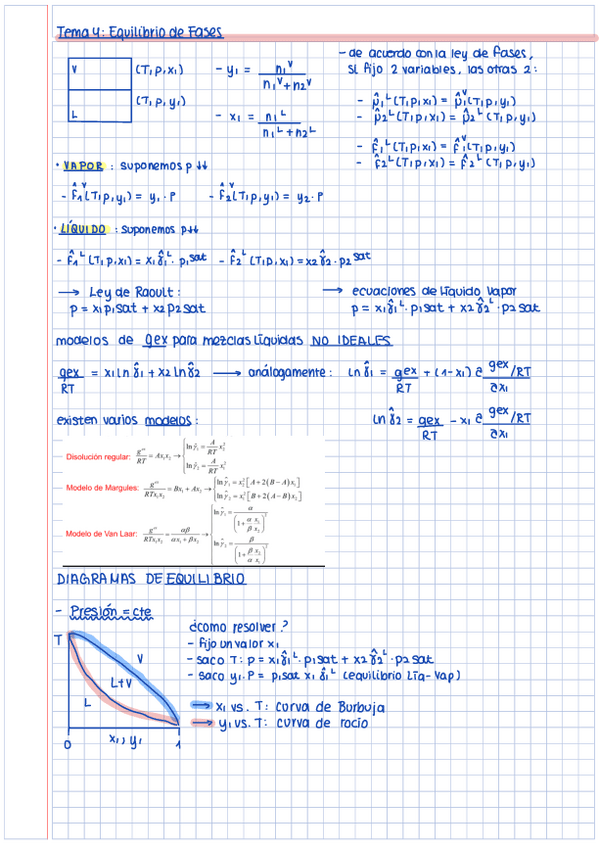 Tema 4: Equilibrio de Fases
V (T,p,x₁)
L (T,p,y₁)
- y₁ = n₁ᵛ / n₁ᵛ+n₂ᵛ
- x₁ = n₁ᴸ / n₁ᴸ+n₂ᴸ
- de acuerdo con la ley de fases,
si fijo 2 variables, las otras 2:
- μ̂₁ᴸ(T,p,x₁) = μ̂₁ᵛ(T,p,y₁)
- μ̂₂ᴸ(T,p,x₁) = μ̂₂ᴸ(T,p,y₁)
- f̂₁ᴸ(T,p,x₁) = f̂₁ᵛ(T,p,y₁)
- f̂₂ᴸ(T,p,x₁) = f̂₂ᴸ(T,p,y₁)
· VAPOR : suponemos p ↓↓
- f̂₁ᵛ(T,p,y₁) = y₁·P - f̂₂ᵛ(T,p,y₁) = y₂·P
· LÍQUIDO : suponemos p↓↓
- f̂₁ᴸ(T,p,x₁) = x₁γ̂₁ᴸ·p₁sat - f̂₂ᴸ(T,p,x₁) = x₂γ̂₂·p₂sat
→ Ley de Raoult:
p = x₁p₁sat + x₂p₂sat
→ ecuaciones de Líquido Vapor
p = x₁γ̂₁ᴸ·p₁sat + x₂γ̂₂ᴸ·p₂sat
modelos de gex para mezclas líquidas NO IDEALES
gex/RT = x₁lnγ̂₁ + x₂lnγ̂₂ → análogamente: lnγ̂₁ = gex/RT + (1-x₁) ∂ gex/RT / ∂x₁
lnγ̂₂ = gex/RT - x₁ ∂ gex/RT / ∂x₁
existen varios modelos:
Disolución regular: gᵉˣ/RT = Ax₁x₂ → { ln γ̂₁ = A/RT x₂²
ln γ̂₂ = A/RT x₁²
Modelo de Margules: gᵉˣ/RTx₁x₂ = Bx₁ + Ax₂ → { ln γ̂₁ = x₂²[A+2(B−A)x₁]
ln γ̂₂ = x₁²[B+2(A−B)x₂]
Modelo de Van Laar: gᵉˣ/RTx₁x₂ = αβ/αx₁+βx₂ → { ln γ̂₁ = α/(1+ α x₁/β x₂)²
ln γ̂₂ = β/(1+ β x₂/α x₁)²
DIAGRAMAS DE EQUILIBRIO
- Presión = cte
T
V
L+V
L
0 x₁, y₁ 1
¿como resolver?
- fijo un valor x₁
- saco T: p = x₁γ̂₁ᴸ·p₁sat + x₂γ̂₂ᴸ·p₂sat
- saco y₁·P = p₁sat x₁γ̂₁ᴸ (equilibrio Líq-Vap)
→ x₁ vs. T: curva de Burbuja
→ y₁ vs. T: curva de rocío